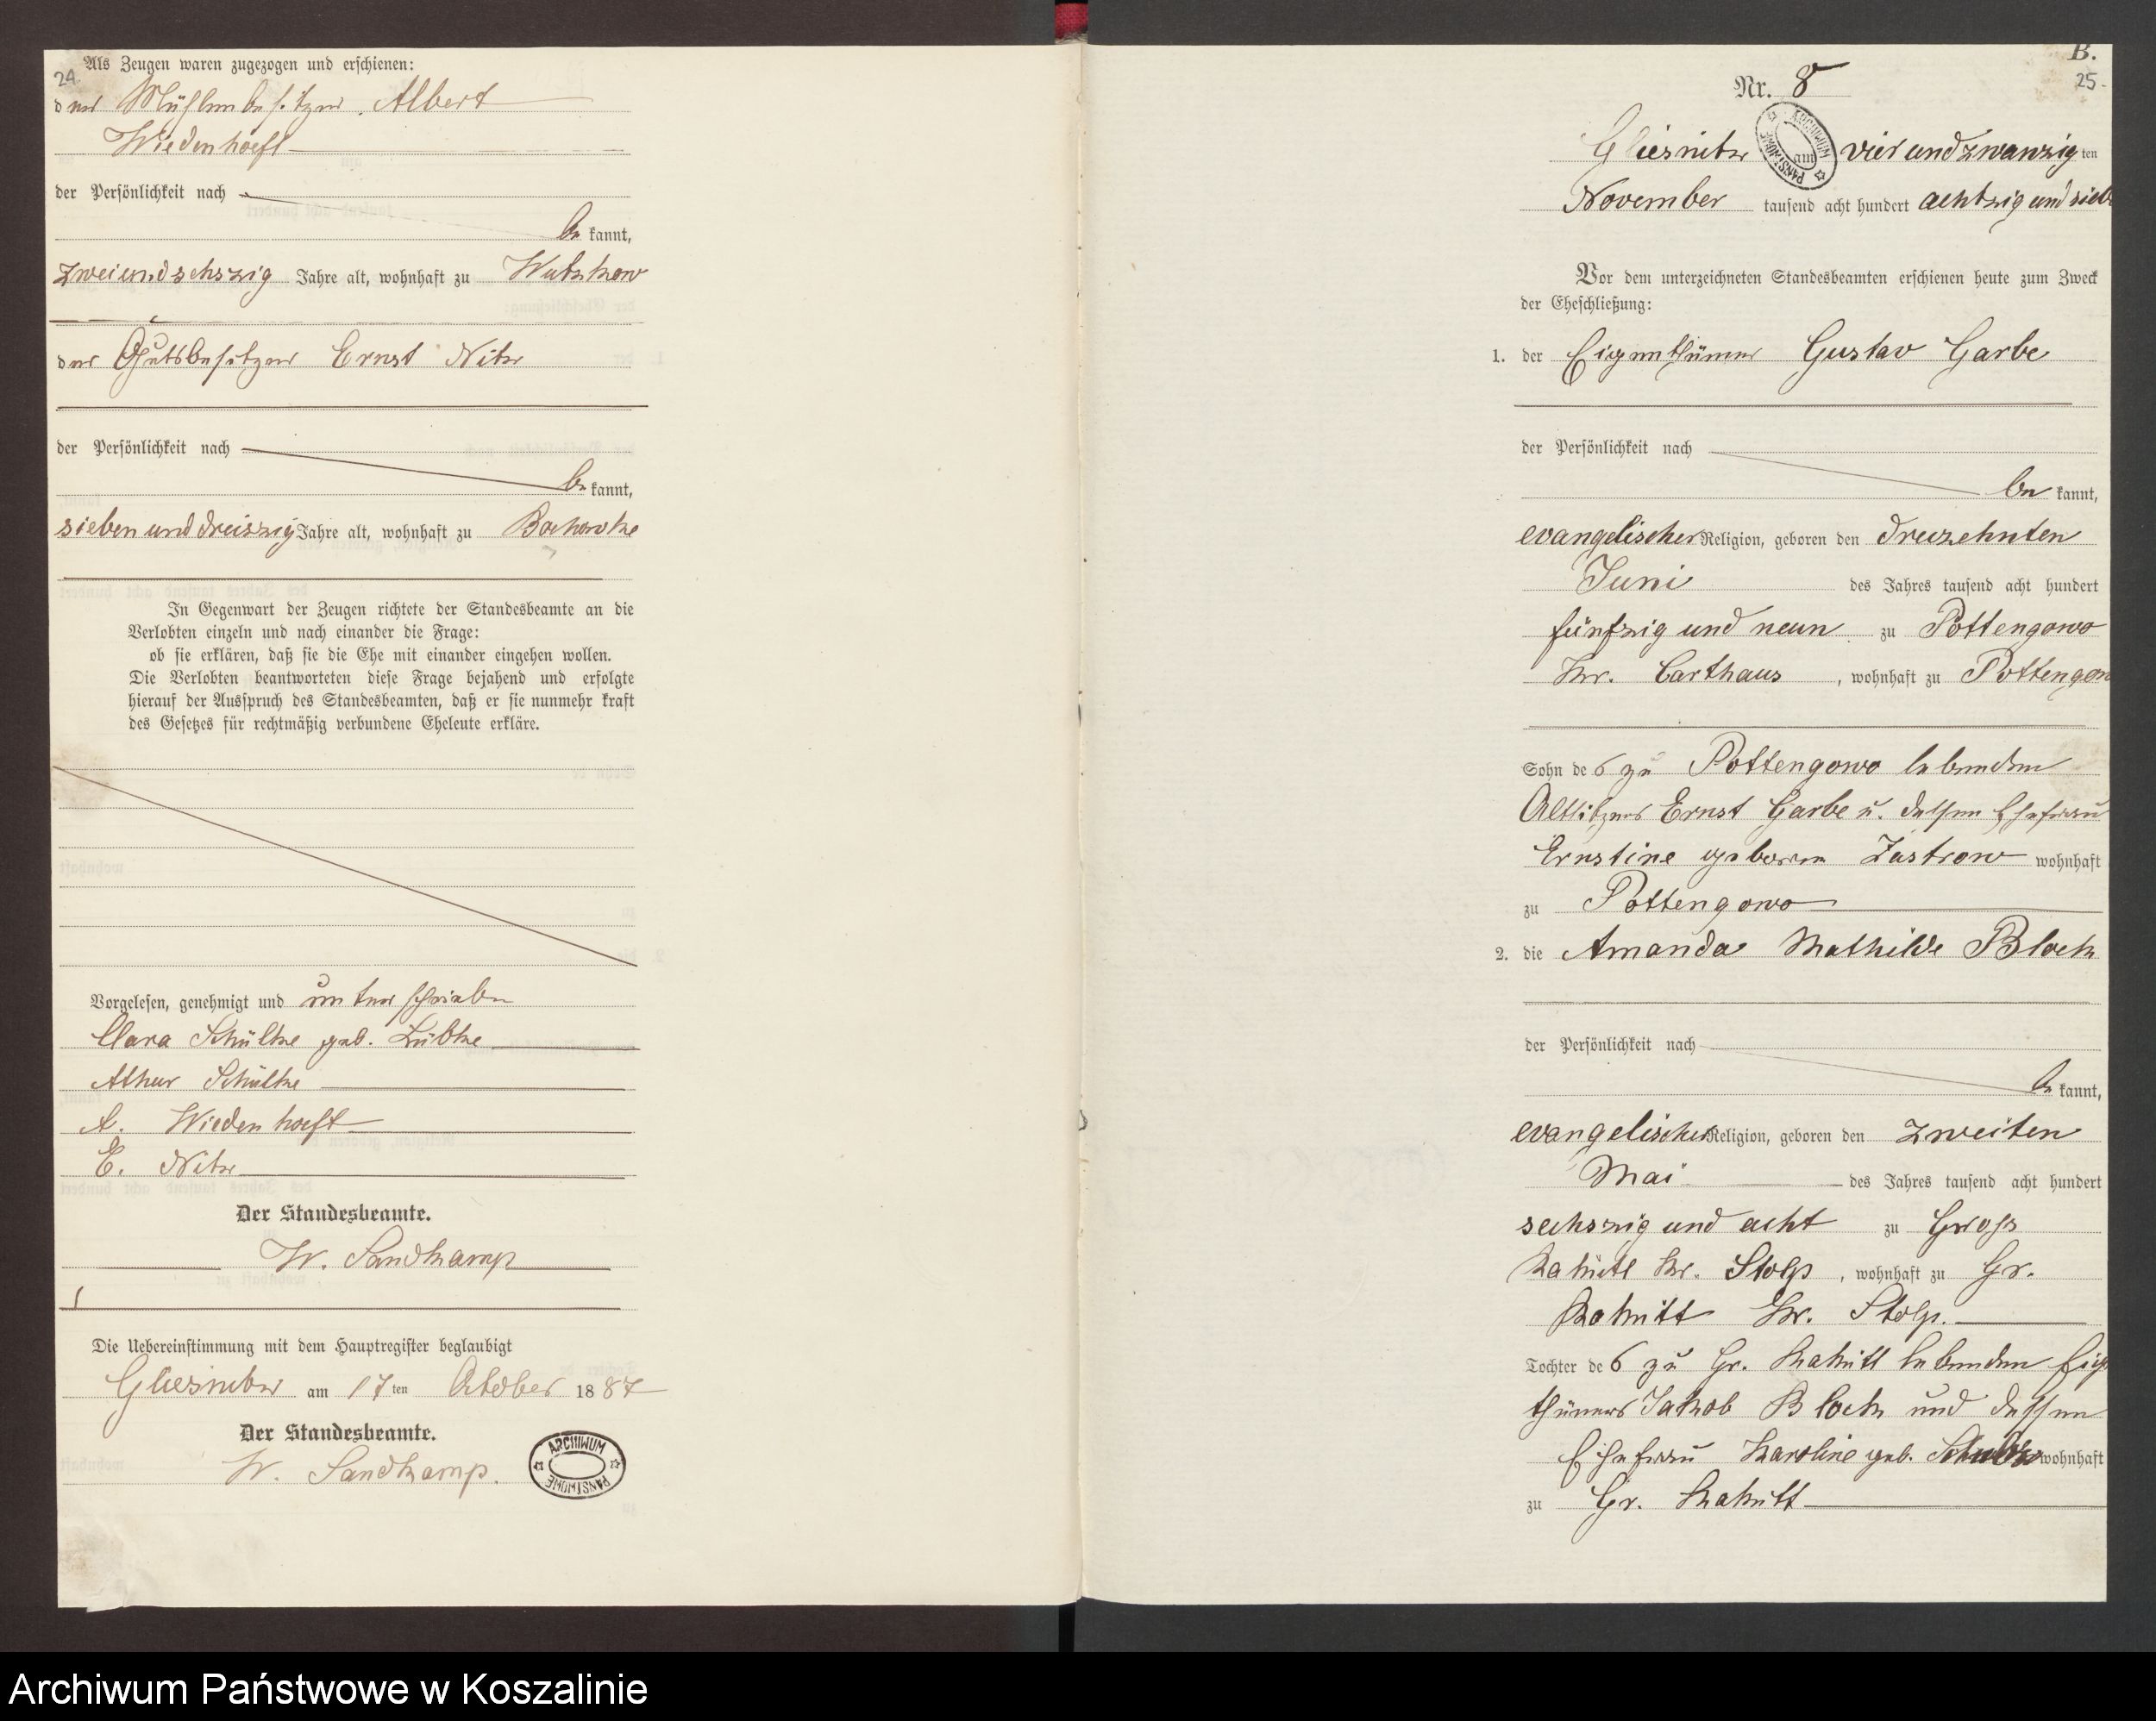 24.
Als Zeugen waren zugezogen und erschienen:
der Mühlenbesitzer Albert
Wiedenhoeft
der Persönlichkeit nach
be kannt,
zweiundsehszig Jahre alt, wohnhaft zu Wutzkow
der Gutsbesitzer Ernst Nitz
der Persönlichkeit nach
be kannt,
sieben und dreiszig Jahre alt, wohnhaft zu
In Gegenwart der Zeugen richtete der Standesbeamte an die
Verlobten einzeln und nach einander die Frage:
ob sie erklären, daß sie die Ehe mit einander eingehen wollen.
Die Verlobten beantworteten diese Frage bejahend und erfolgte
hierauf der Ausspruch des Standesbeamten, daß er sie nunmehr kraft
des Gesetzes für rechtmäßig verbundene Eheleute erkläre.
Vorgelesen, genehmigt und unterschrieben
Clara Schültke geb. Lübke
Athur Schültke
A. Wiedenhoeft
E. Nitz
Der Standesbeamte.
W. Sandkamp
Die Uebereinstimmung mit dem Hauptregister beglaubigt
Gliesnitz am 17 ten October 18 87
Der Standesbeamte.
W. Sandkamp.
ARCHIWUM PAŃSTWOWE
B.
25.
Nr. 8
Gliesnitz am vier und zwanzig ten
ARCHIWUM PAŃSTWOWE
November tausend acht hundert achtzig und sieb
Vor dem unterzeichneten Standesbeamten erschienen heute zum Zweck
der Eheschließung:
1. der Eigenthümer Gustav Garbe
der Persönlichkeit nach
be kannt,
evangelischer Religion, geboren den dreizehnten
Juni des Jahres tausend acht hundert
fünfzig und neun zu Pottengowo
Kr. Carthaus, wohnhaft zu Pottengow
Sohn des zu Pottengowo lebenden
Altsitzers Ernst Garbe u. dessen Ehefrau
Ernstine geboren Zastrow wohnhaft
zu Pottengowo
2. die Amanda Mathilde Block
der Persönlichkeit nach
be kannt,
evangelischer Religion, geboren den zweiten
Mai des Jahres tausend acht hundert
sechszig und acht zu Gross
Rakitt Kr. Stolp, wohnhaft zu Gr.
Rakitt Kr. Stolp.
Tochter des zu Gr. Rakitt lebenden Eig
thümers Jakob Block und dessen
Ehefrau Karoline geb. Schulz wohnhaft
zu Gr. Rakitt
Archiwum Państwowe w Koszalinie